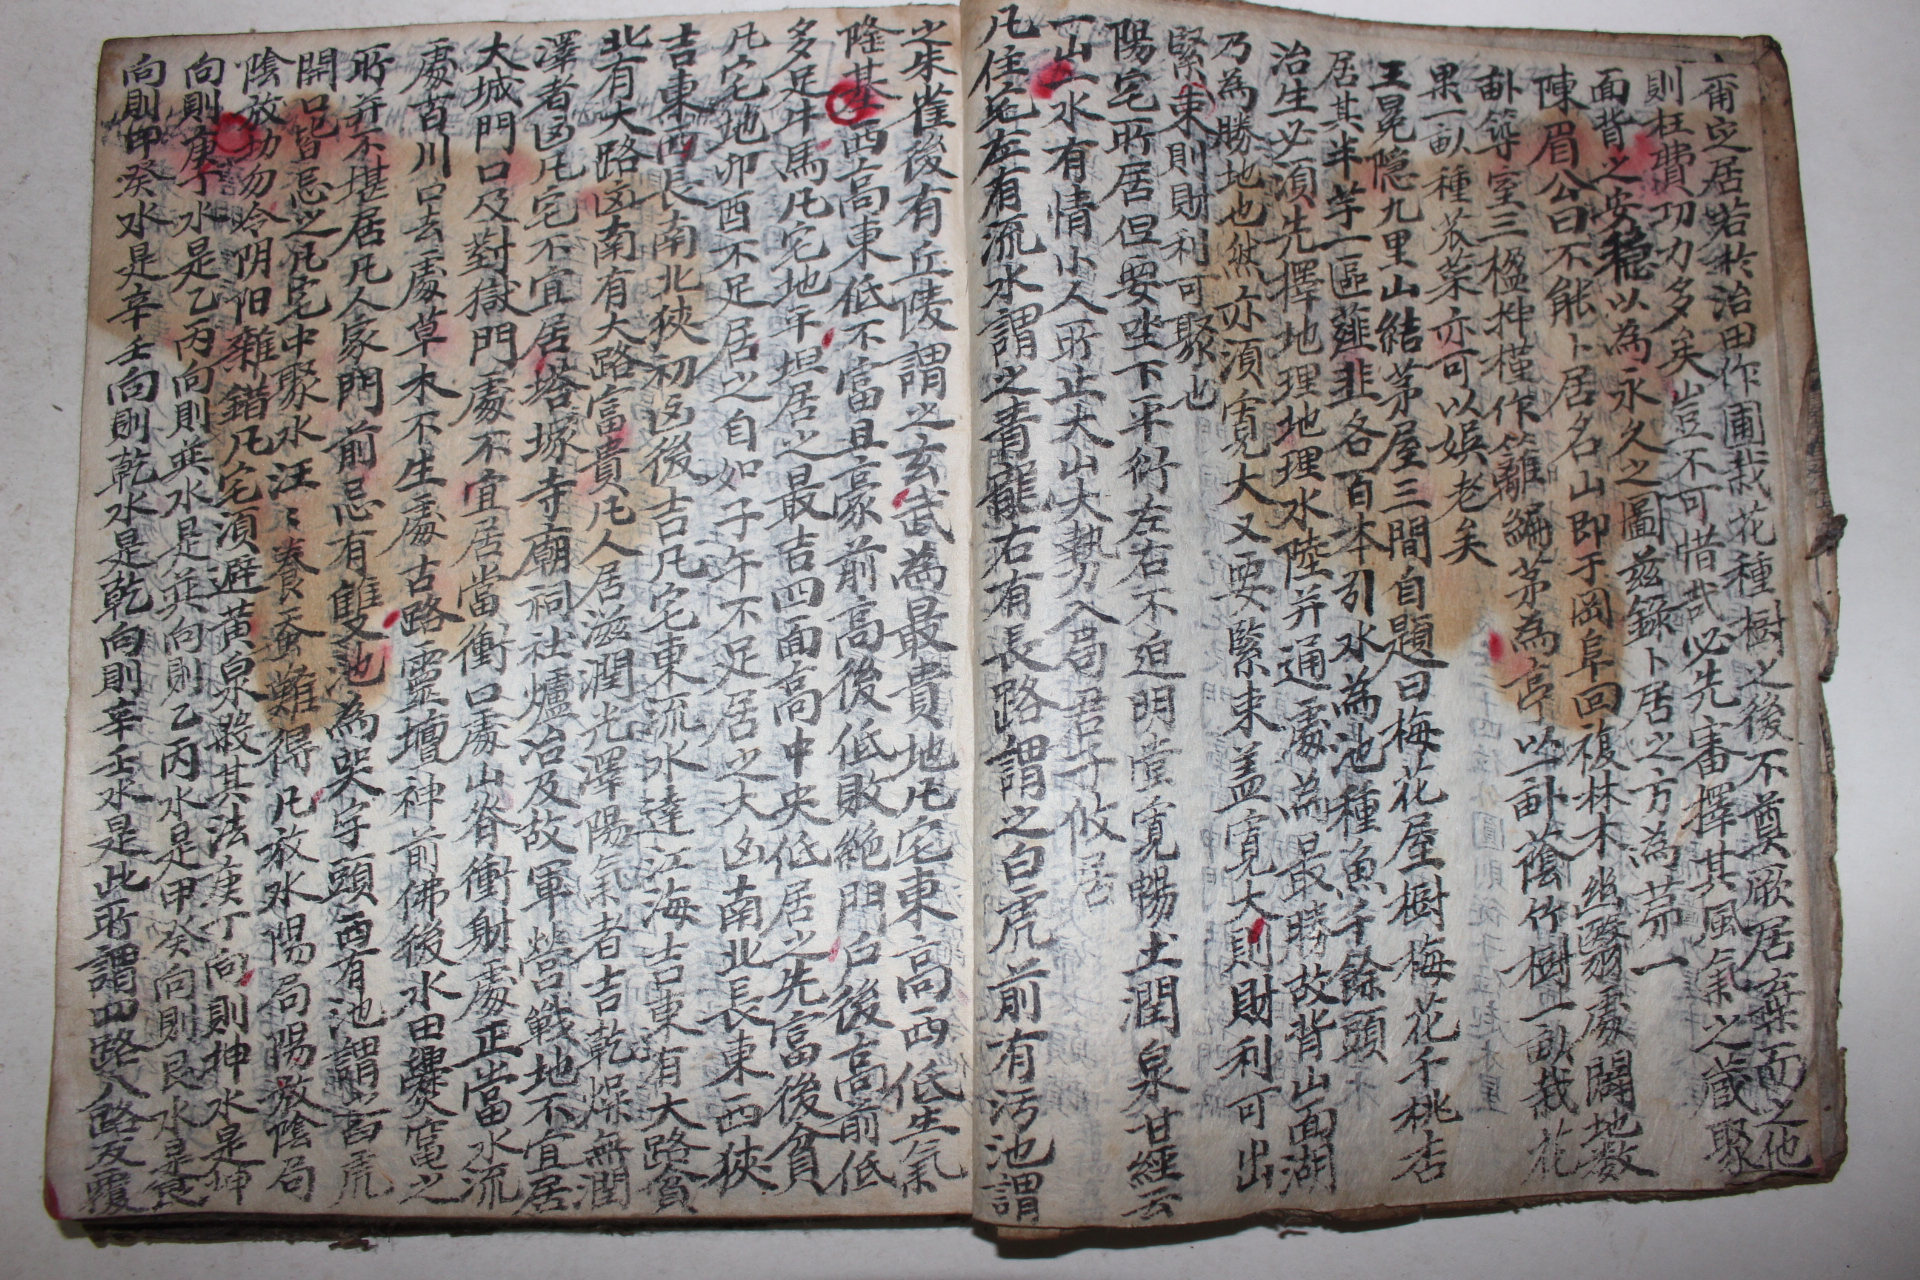 爾定居若於治田作圃栽花種樹之後不奠厥居弃而之他
則枉費功力多矣豈不可惜哉必先審擇其風氣之藏聚
面背之安穩以為永久之圖玆錄卜居之方為第一
陳眉公曰不能卜居名山即于岡阜回複林木幽翳處闢地數
畝築室三楹揷槿作籬編茅為亭以一畝蔭竹樹一畝栽花
果一畝種苽菜亦可以娛老矣
王冕隱九里山結茅屋三間自題曰梅花屋樹梅花千桃杏
居其半芋一區薤韭各百本引水為池種魚千餘頭
治生必湏先擇地理地理水陸并通處為最勝故背山面湖
乃為勝地也然亦湏寬大又要緊束盖寬大則財利可出
緊束則財利可聚也
陽宅所居但要坐下平衍左右不迫明堂寬暢土潤泉甘經云
一山一水有情小人所止大山大勢入局君子攸居
凡住宅左有流水謂之青龍右有長路謂之白虎前有汚池謂
之朱雀後有丘陵謂之玄武為最貴地凡宅東高西低生氣
隆基西高東低不富且豪前高後低敗絶門戶後高前低
多足牛馬凡宅地平坦居之最吉四面高中央低居之先富後貧
凡宅地卯酉不足居之自如子午不足居之大凶南北長東西狹
吉東西長南北狹初凶後吉凡宅東流水達江海吉東有大路貧
北有大路凶南有大路富貴凡人居滋潤光澤陽氣者吉乾燥無潤
澤者凶凡宅不宜居塔塚寺廟祠社爐冶及故軍營戰地不宜居
大城門口及對獄門處不宜居當衝口處山脊衝射處正當水流
處百川口去處草木不生處古路靈壇神前佛後水田爨窰之
所并不堪居凡人家門前忌有雙池為哭字頭西有池謂白虎
開口皆忌之凡宅中聚水汪汪養蚕難得凡放水陽局陽放陰局
陰放切勿令阴阳雜錯凡宅湏避黃泉殺其法庚丁向則坤水是坤
向則庚丁水是乙丙向則巽水是巽向則乙丙水是甲癸向則艮水是艮
向則甲癸水是辛壬向則乾水是乾向則辛壬水是此所謂四路八路反覆